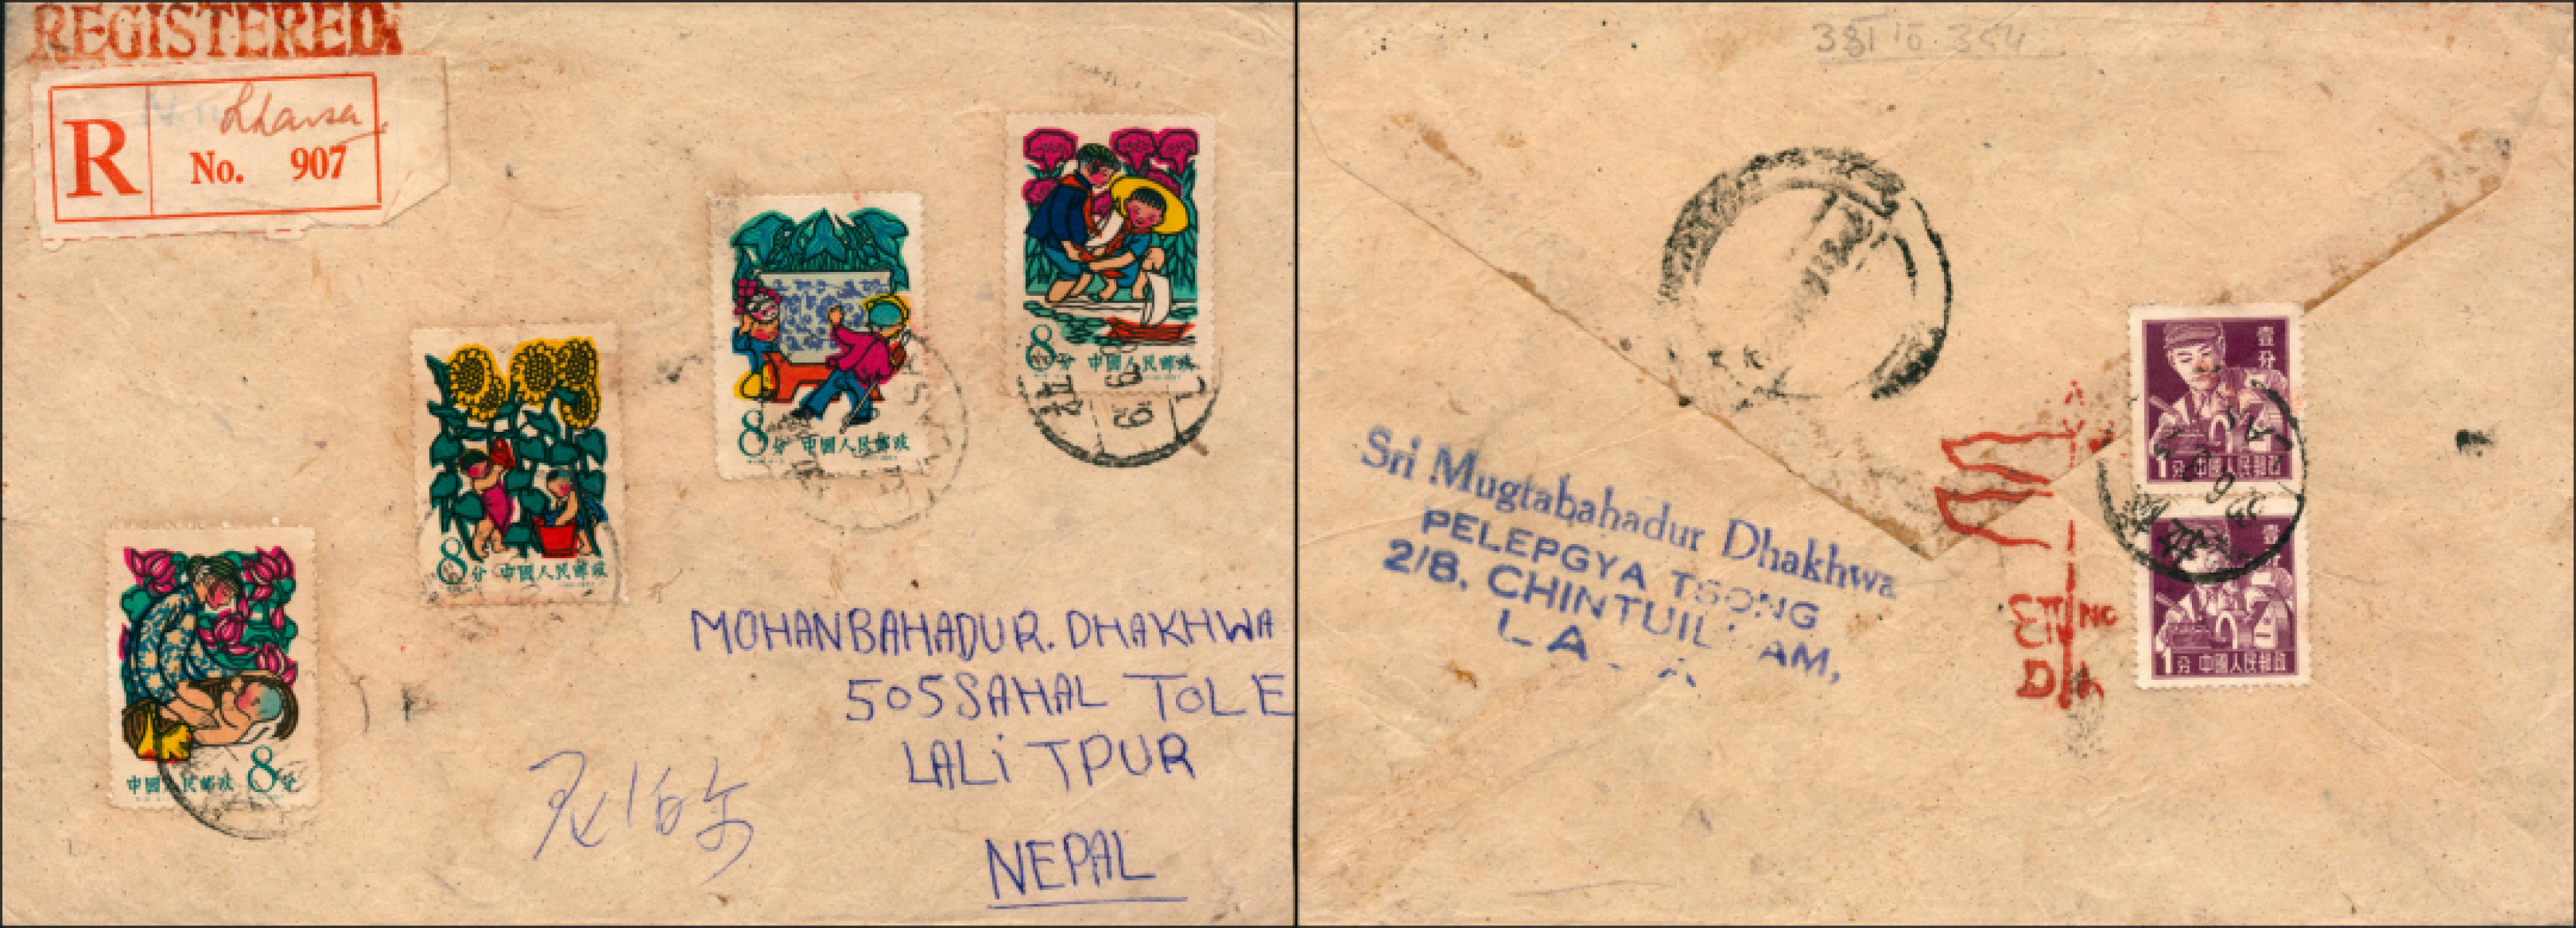 REGISTERED
Lhassa
R
No. 907
8分 中國人民郵政
8分 中國人民郵政
8分 中國人民郵政
中國人民郵政 8分
MOHANBAHADUR. DHAKHWA
505 SAHAL TOLE
LALiTPUR
NEPAL
尼伯尔
Sri Mugtabahadur Dhakhwa
PELEPGYA TSONG
2/8, CHINTUIL AM,
壹分
1分 中國人民郵政
壹分
1分 中國人民郵政